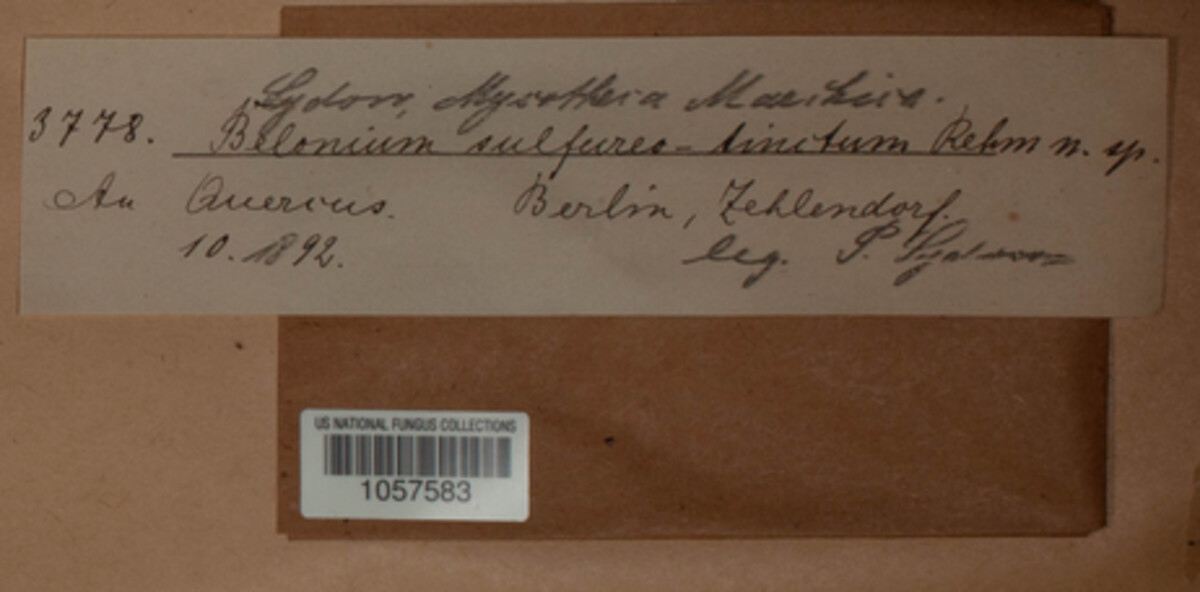 Sydow, Mycotheca Marchica.
3778. Belonium sulfureo-tinctum Rehm n. sp.
An Quercus. Berlin, Zehlendorf.
10. 1892. leg. P. Sydow
US NATIONAL FUNGUS COLLECTIONS
1057583